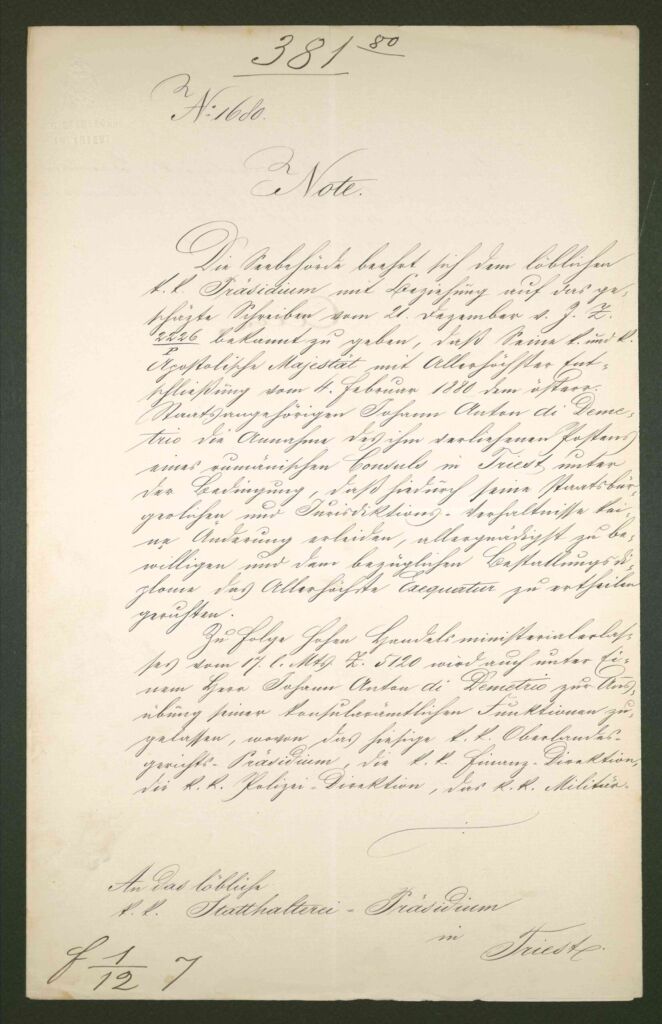 381 80
N: 1680.
Note.
Die Seebehörde beehrt sich dem löblichen
k. k. Präsidium mit Beziehung auf das ge-
schäzte Schreiben vom 21. Dezember v. J. Z.
2226/P bekannt zu geben, daß Seine k. und k.
Apostolische Majestät mit Allerhöchster Ent-
schließung vom 4. Februar 1880 dem österr.
Staatsangehörigen Johann Anton di Deme-
trio die Annahme des ihm verliehenen Postens
eines rumänischen Consuls in Triest, unter
der Bedingung, daß hiedurch seine Staatsbür-
gerlichen und Jurisdiktions-Verhältnisse kei-
ne Änderung erleiden, allergnädigst zu be-
willigen und dem bezüglichen Bestallungsdi-
plome das Allerhöchste Exequatur zu ertheilen
geruhten.
Zu Folge hohen Handelsministerialerlas-
ses vom 17. l. Mts. Z. 5120 wird auch unter Ei-
nem Herr Johann Anton di Demetrio zur Aus-
übung seiner konsularämtlichen Funktionen zu-
gelassen, wovon das hiesige k. k. Oberlandes-
gerichts-Präsidium, die k. k. Finanz-Direktion,
die k. k. Polizei-Direktion, das k. k. Militär-
An das löbliche
k. k. Statthalterei-Präsidium
in Triest
1/12 7